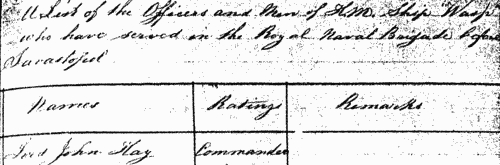 A List of the Officers and Men of H.M. Ship Wasp
who have served in the Royal Naval Brigade before
Sevastopol
Names Ratings Remarks
Lord John Hay Commander